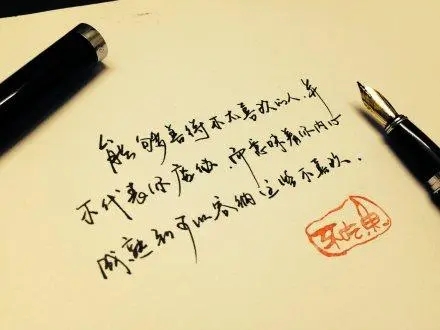 能够善待不太喜欢的人,并
不代表你虚伪,而意味着你内心
成熟到可以容纳这些不喜欢.
不吃鱼